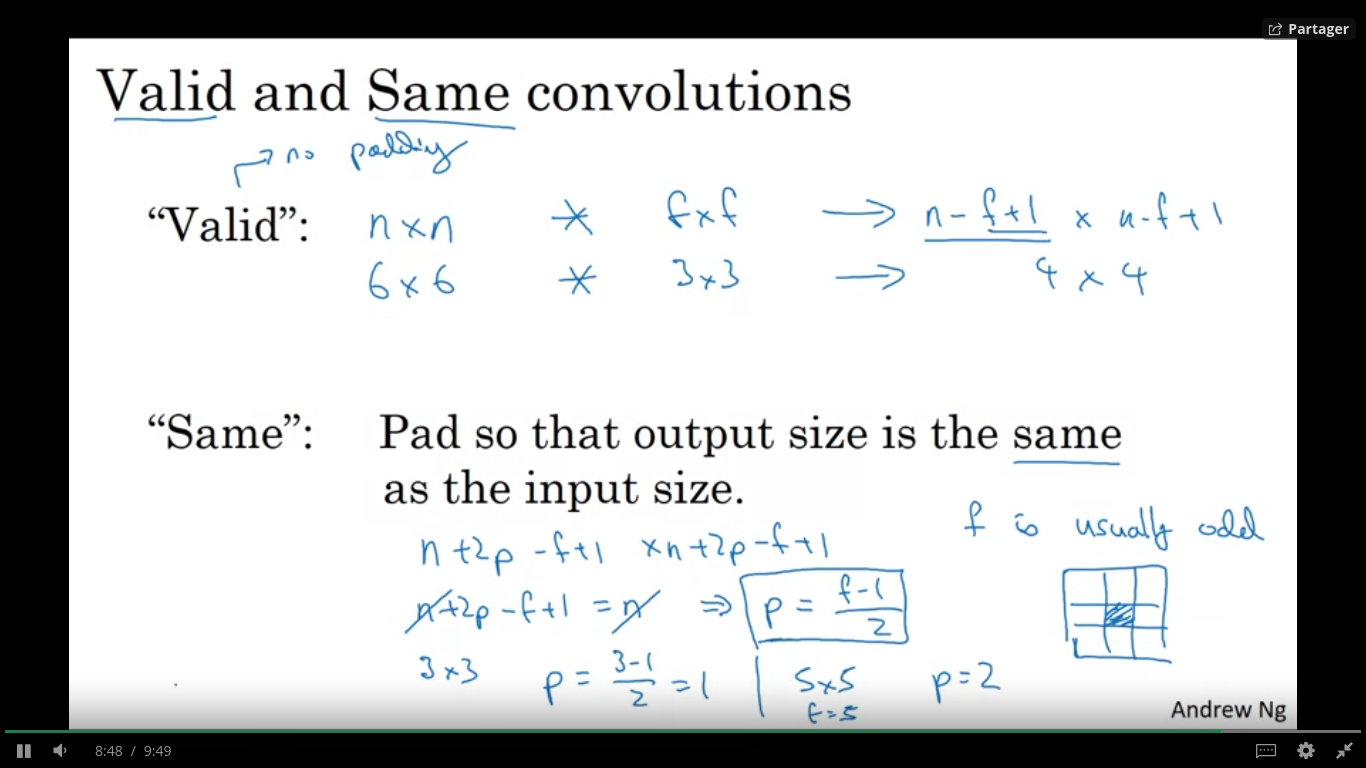 Partager
Valid and Same convolutions
→ no padding
“Valid”: n×n * f×f → n-f+1 × n-f+1
6×6 * 3×3 → 4×4
“Same”: Pad so that output size is the same
as the input size.
n+2p-f+1 ×n+2p-f+1
f is usually odd
n+2p-f+1 = n ⇒ p = (f-1)/2
3×3 p = (3-1)/2 = 1 | 5×5 p=2
f=5
Andrew Ng
8:48 / 9:49